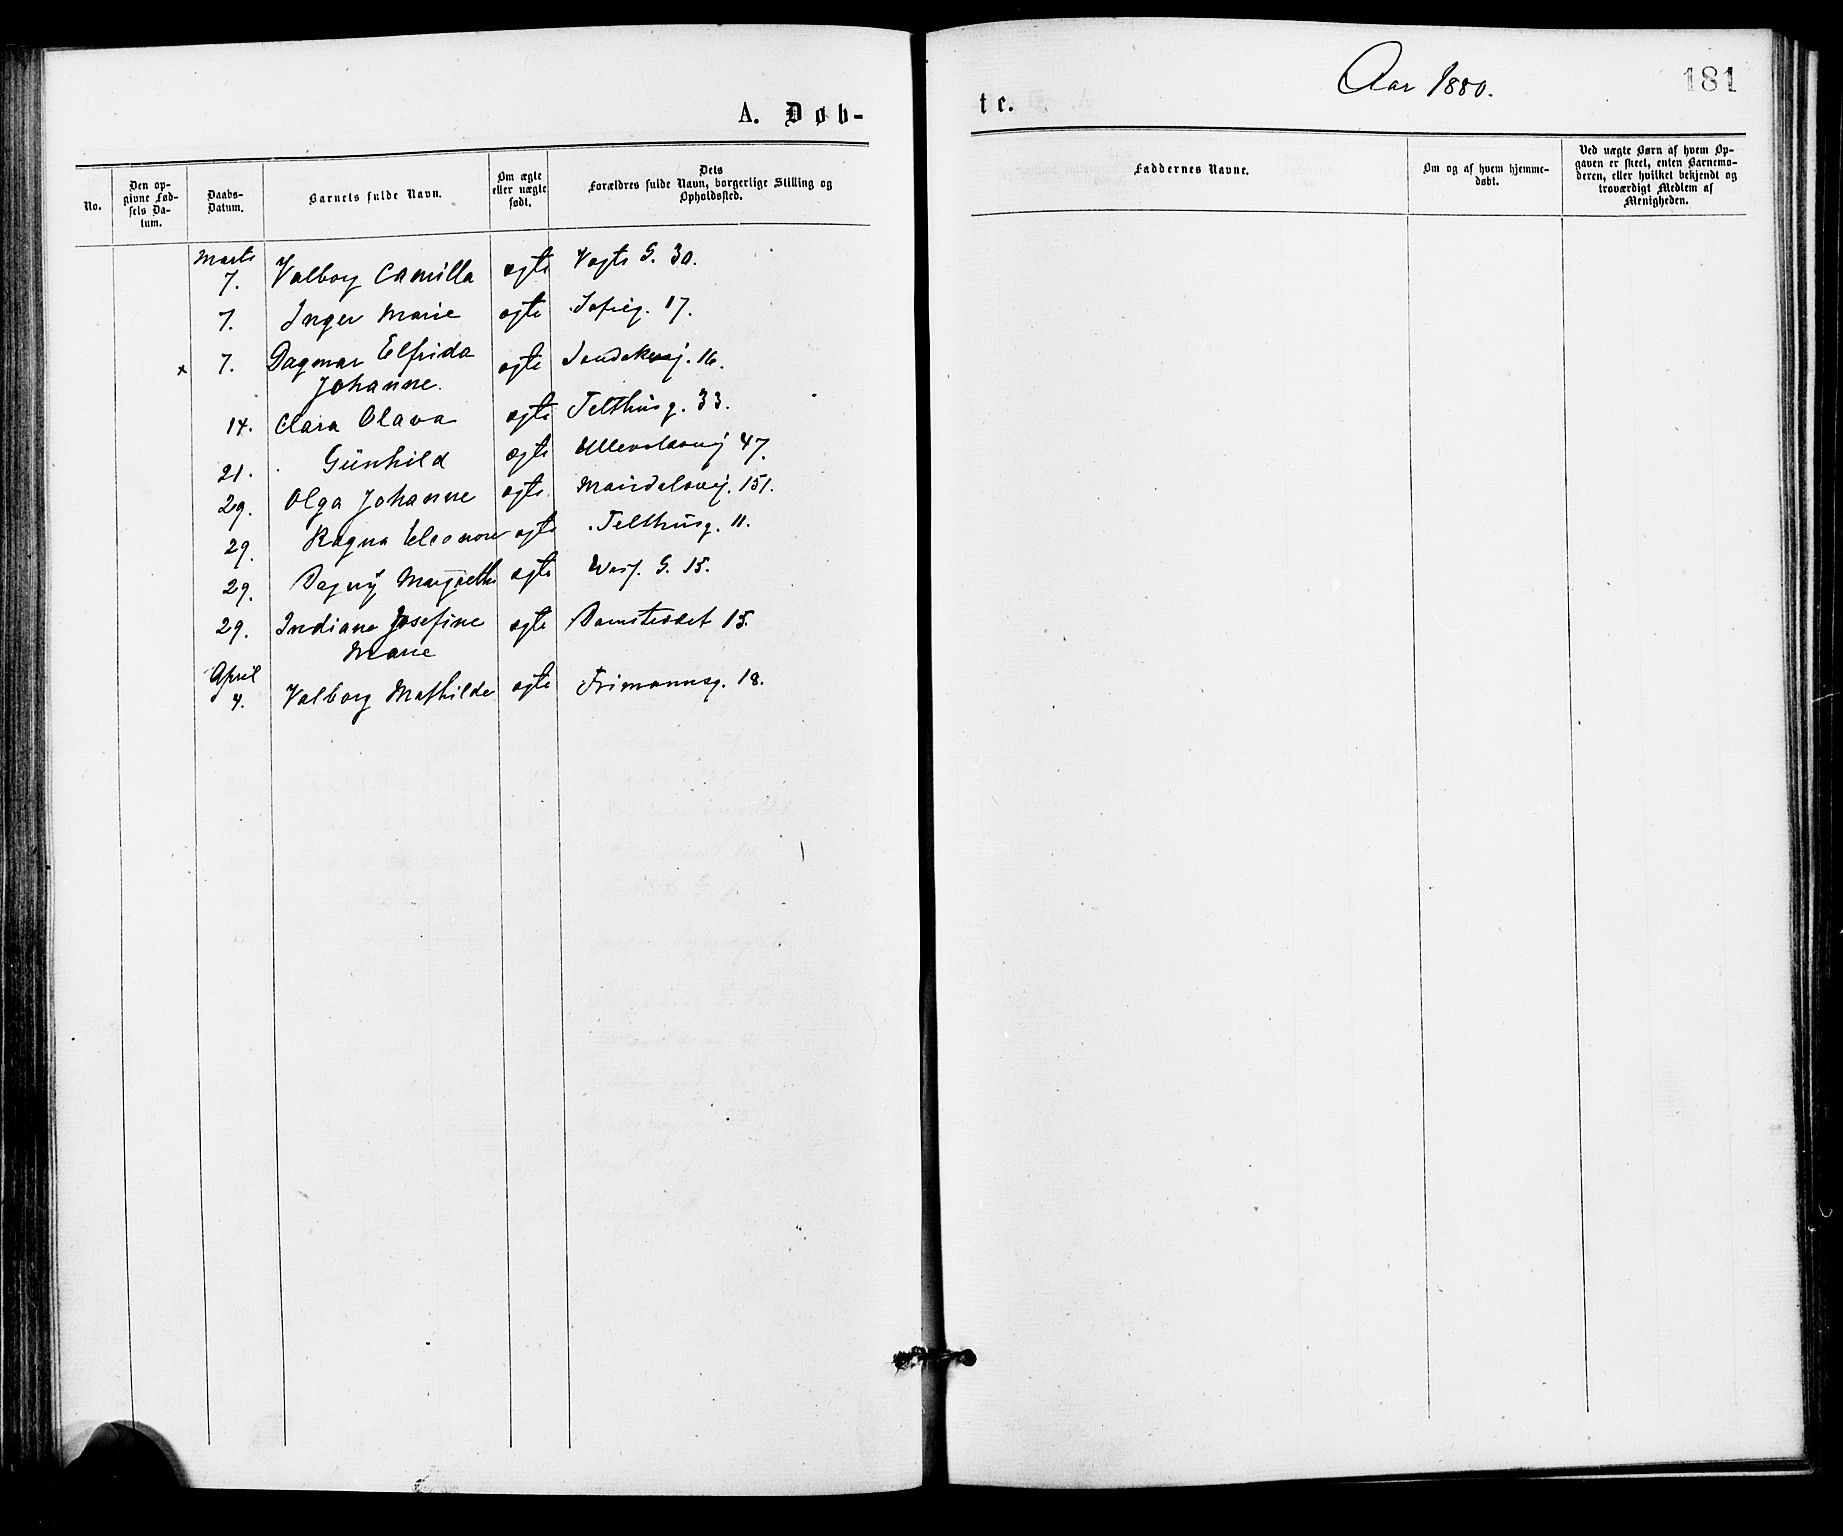 A. Døb-
No.
Den op-
givne Fød-
sels Da-
tum.
Daabs-
Datum.
Barnets fulde Navn.
Om ægte
eller uægte
født.
Dets
Forældres fulde Navn, borgerlige Stilling og
Opholdssted.
Marts
7. Valborg Camilla ægte Vogts G. 30.
7. Inger Marie ægte Sofieg. 17.
x 7. Dagmar Elfrida ægte 16.
Johanne.
14. Clara Olava ægte Telthusg. 33.
21. Gunhild ægte Ullevoldsvej 47.
29. Olga Johanne ægte Maridalsvej. 151.
29. Ragna Eleonore ægte Telthusg. 11.
29. Dagny Margrethe ægte G. 15.
29. Indiana Josefine ægte Damstedet 15.
Marie
April
4. Valborg Mathilde ægte Frimannsg. 18.
Aar 1880.
181
te.
Faddernes Navne.
Om og af hvem hjemme-
døbt.
Ved uægte Børn af hvem Op-
gaven er skeet, enten Barnemo-
deren, eller hvilket bekjendt og
troværdigt Medlem af
Menigheden.